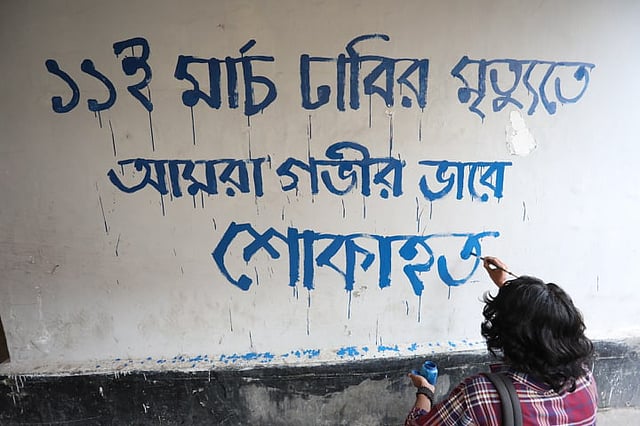 ১১ই মার্চ ঢাবির মৃত্যুতে
আমরা গভীর ভাবে
শোকাহত